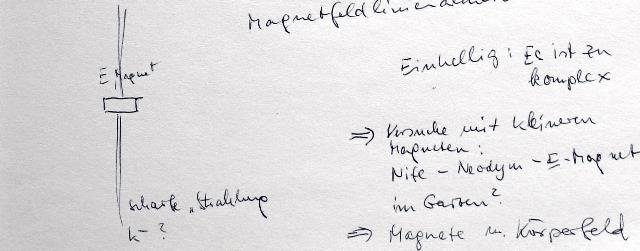 Magnetfeldlinien
Einhellig: Es ist zu
komplex
E Magnet
⇒ Versuche mit kleineren
Magneten:
Nife - Neodym - E-Magnet
im Garten?
scharfe "Strahlung
k- ?
⇒ Magnete u. Körperfeld